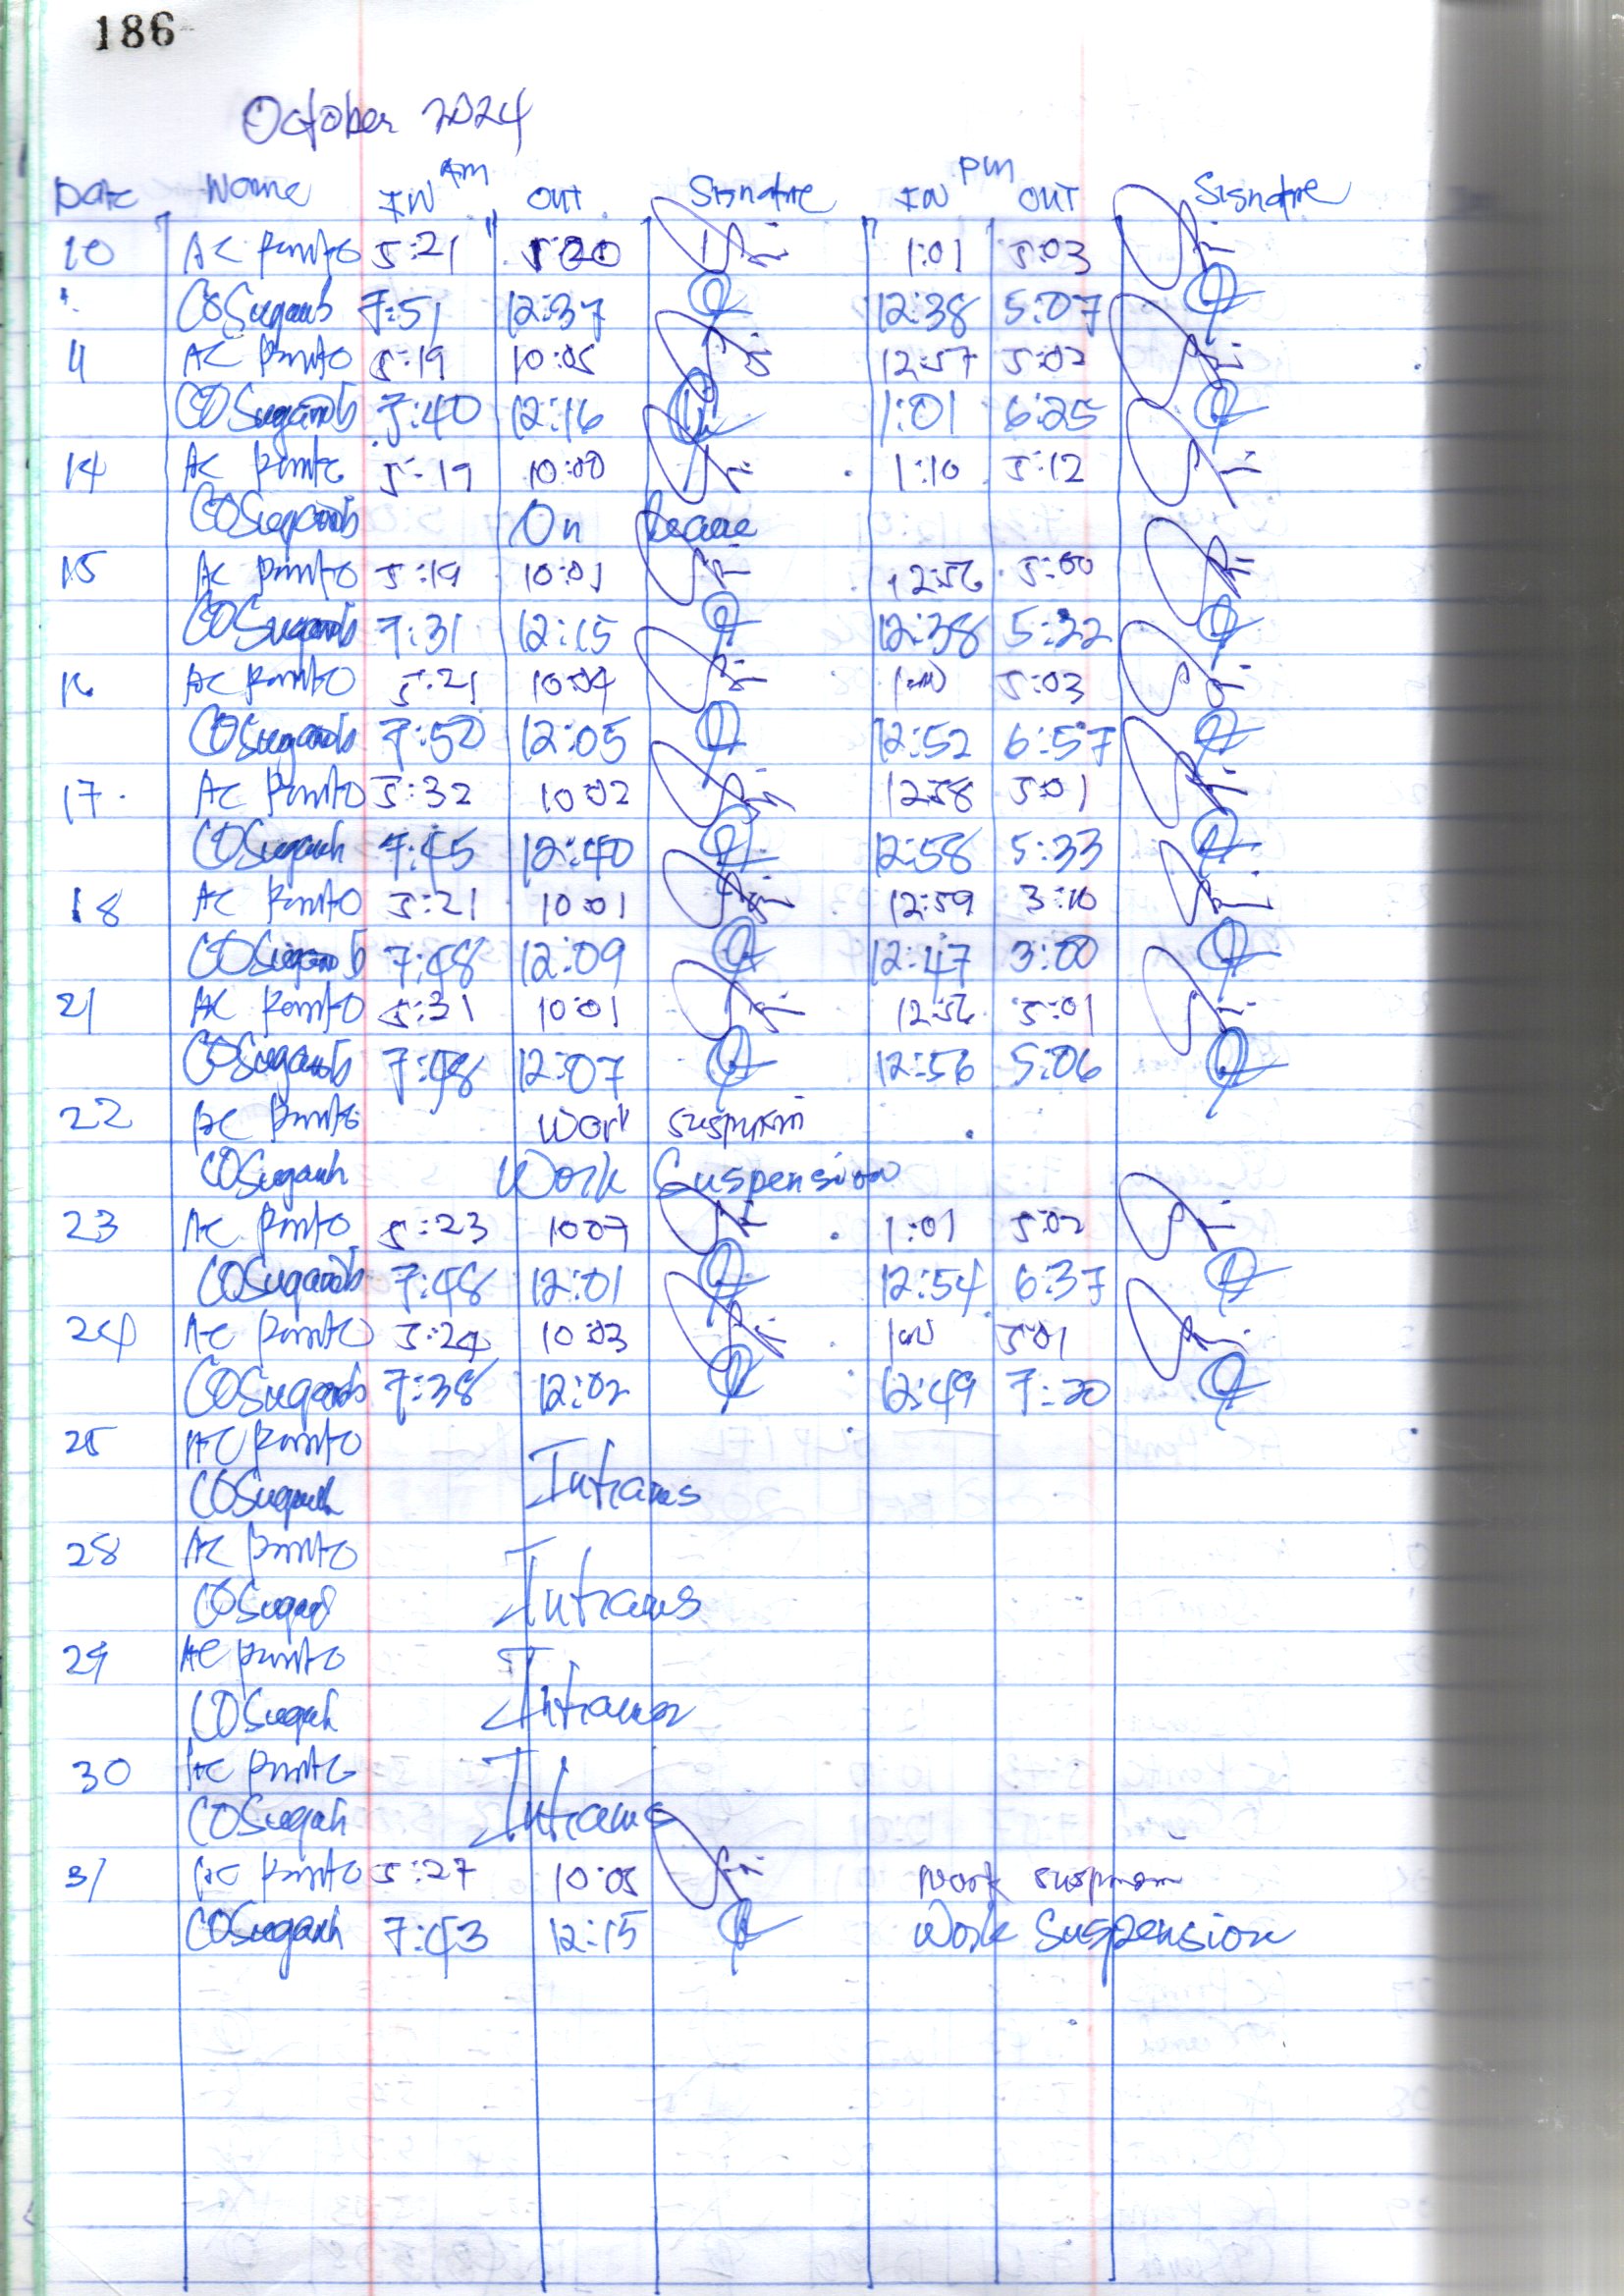 186
October 2024
AM PM
Date Name IN OUT Signature IN OUT Signature
10 AC Pinto 5:21 1:01 5:03
COSugarol 7:51 12:37 12:38 5:07
11 AC Pinto 5:19 10:05 12:57 5:02
COSugarol 7:40 12:16 1:01 6:25
14 AC Pinto 5:19 10:00 1:10 5:12
On leave
15 AC Pinto 5:19 10:01 12:56 5:00
7:31 12:15 12:38 5:32
16 AC Pinto 5:21 10:04 1:00 5:03
7:50 12:05 12:52 6:57
17 AC Pinto 5:32 10:02 12:58 5:01
7:45 12:40 12:58 5:33
18 AC Pinto 5:21 10:01 12:59 3:10
7:48 12:09 12:47 3:00
21 AC Pinto 5:31 10:01 12:56 5:01
7:48 12:07 12:56 5:06
22 AC Pinto Work suspension
Work Suspension
23 AC Pinto 5:23 10:07 1:01 5:02
7:48 12:01 12:54 6:37
24 AC Pinto 5:24 10:03 1:00 5:01
7:38 12:02 12:49 7:20
25 AC Pinto
Intrams
28 AC Pinto
Intrams
29 AC Pinto
Intrams
30 AC Pinto
Intrams
31 AC Pinto 5:27 10:05 Work suspension
7:43 12:15 Work Suspension